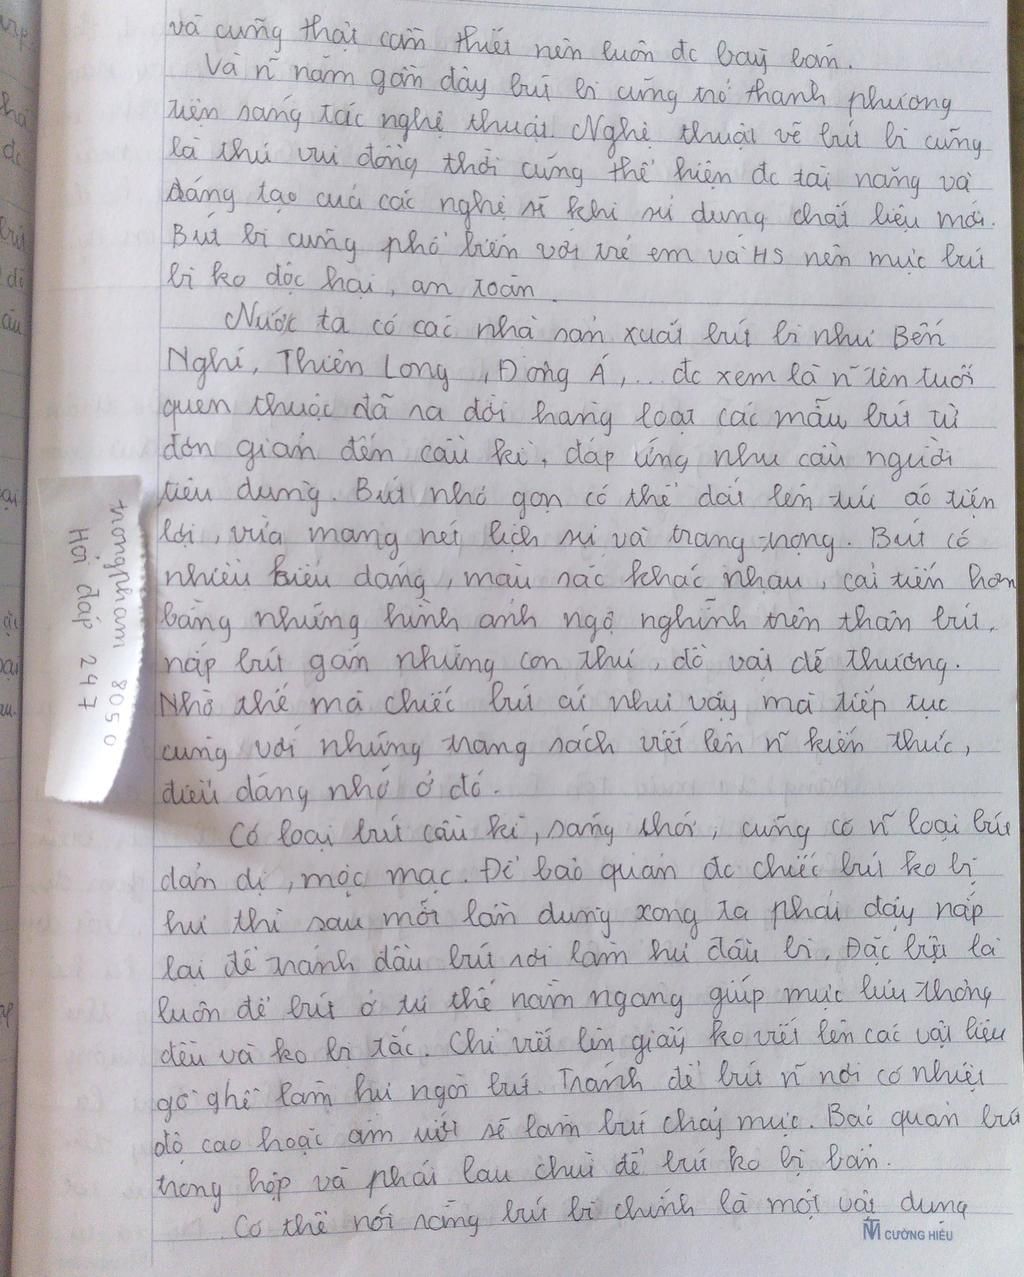 và cũng thật cần thiết nên luôn đc bày bán.
Và n~ năm gần đây bút bi cũng trở thành phương
tiện sáng tác nghệ thuật. Nghệ thuật vẽ bút bi cũng
là thú vui đồng thời cũng thể hiện đc tài năng và
sáng tạo của các nghệ sĩ khi sử dụng chất liệu mới.
Bút bi cũng phổ biến với trẻ em và HS nên mực bút
bi ko độc hại, an toàn.
Nước ta có các nhà sản xuất bút bi như Bến
Nghé, Thiên Long, Đông Á,... đc xem là n~ tên tuổi
quen thuộc đã ra đời hàng loạt các mẫu bút từ
đơn giản đến cầu kì, đáp ứng nhu cầu người
tiêu dùng. Bút nhỏ gọn có thể dắt lên túi áo tiện
lợi, vừa mang nét lịch sự và trang trọng. Bút có
nhiều kiểu dáng, màu sắc khác nhau, cải tiến hơn
bằng những hình ảnh ngộ nghĩnh trên thân bút,
nắp bút gắn những con thú, đồ vật dễ thương.
Nhờ thế mà chiếc bút cứ như vậy mà tiếp tục
cùng với những trang sách viết lên n~ kiến thức,
điều đáng nhớ ở đó.
Có loại bút cầu kì, sang chói, cũng có n~ loại bút
dản dị, mộc mạc. Để bảo quản đc chiếc bút ko bị
hư thì sau mỗi lần dùng xong ta phải đậy nắp
lại để tránh đầu bút rơi làm hư đầu bi. Đặc biệt là
luôn để bút ở tư thế nằm ngang giúp mực lưu thông
đều và ko bị tắc. Chỉ viết lên giấy ko viết lên các vật liệu
gồ ghề làm hư ngòi bút. Tránh để bút n~ nơi có nhiệt
độ cao hoặc ẩm ướt sẽ làm bút chảy mực. Bảo quản bút
trong hộp và phải lau chùi để bút ko bị bẩn.
Có thể nói rằng bút bi chính là một vật dụng
trongpham 8050
Hỏi đáp 247
CƯỜNG HIẾU